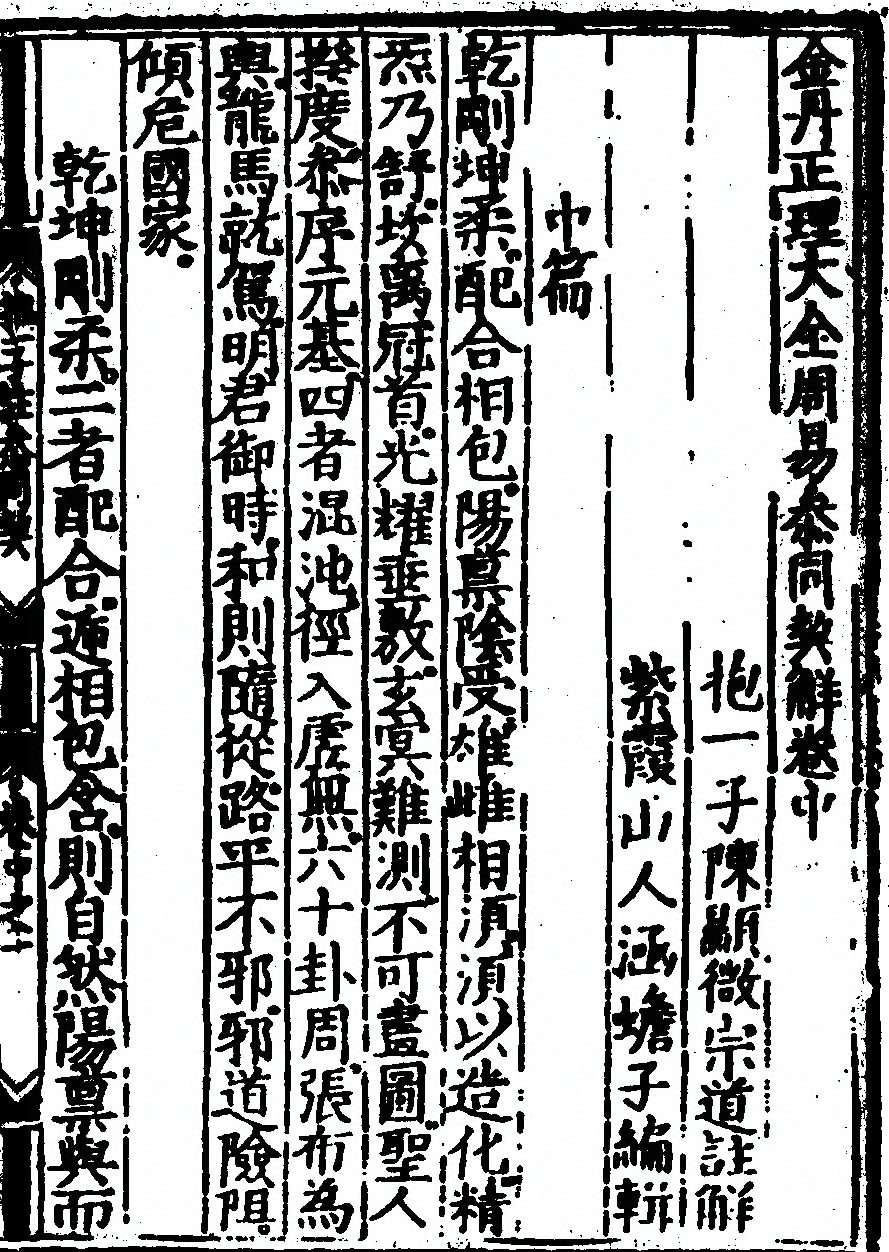 金丹正理大全周易叅同契解卷中
抱一子陳顯微宗道註解
紫霞山人涵蟾子編輯
中篇
乾剛坤柔配合相包陽稟陰受雄雌相湏湏以造化精
炁乃舒坎离冠首光耀垂敷玄冥難測不可畫圖聖人
揆度叅序元基四者混沌徑入虛無六十卦周張布為
輿龍馬就駕明君御時和則隨從路平不邪邪道險阻
傾危國家
乾坤剛柔二者配合遞相包含則自然陽稟與而